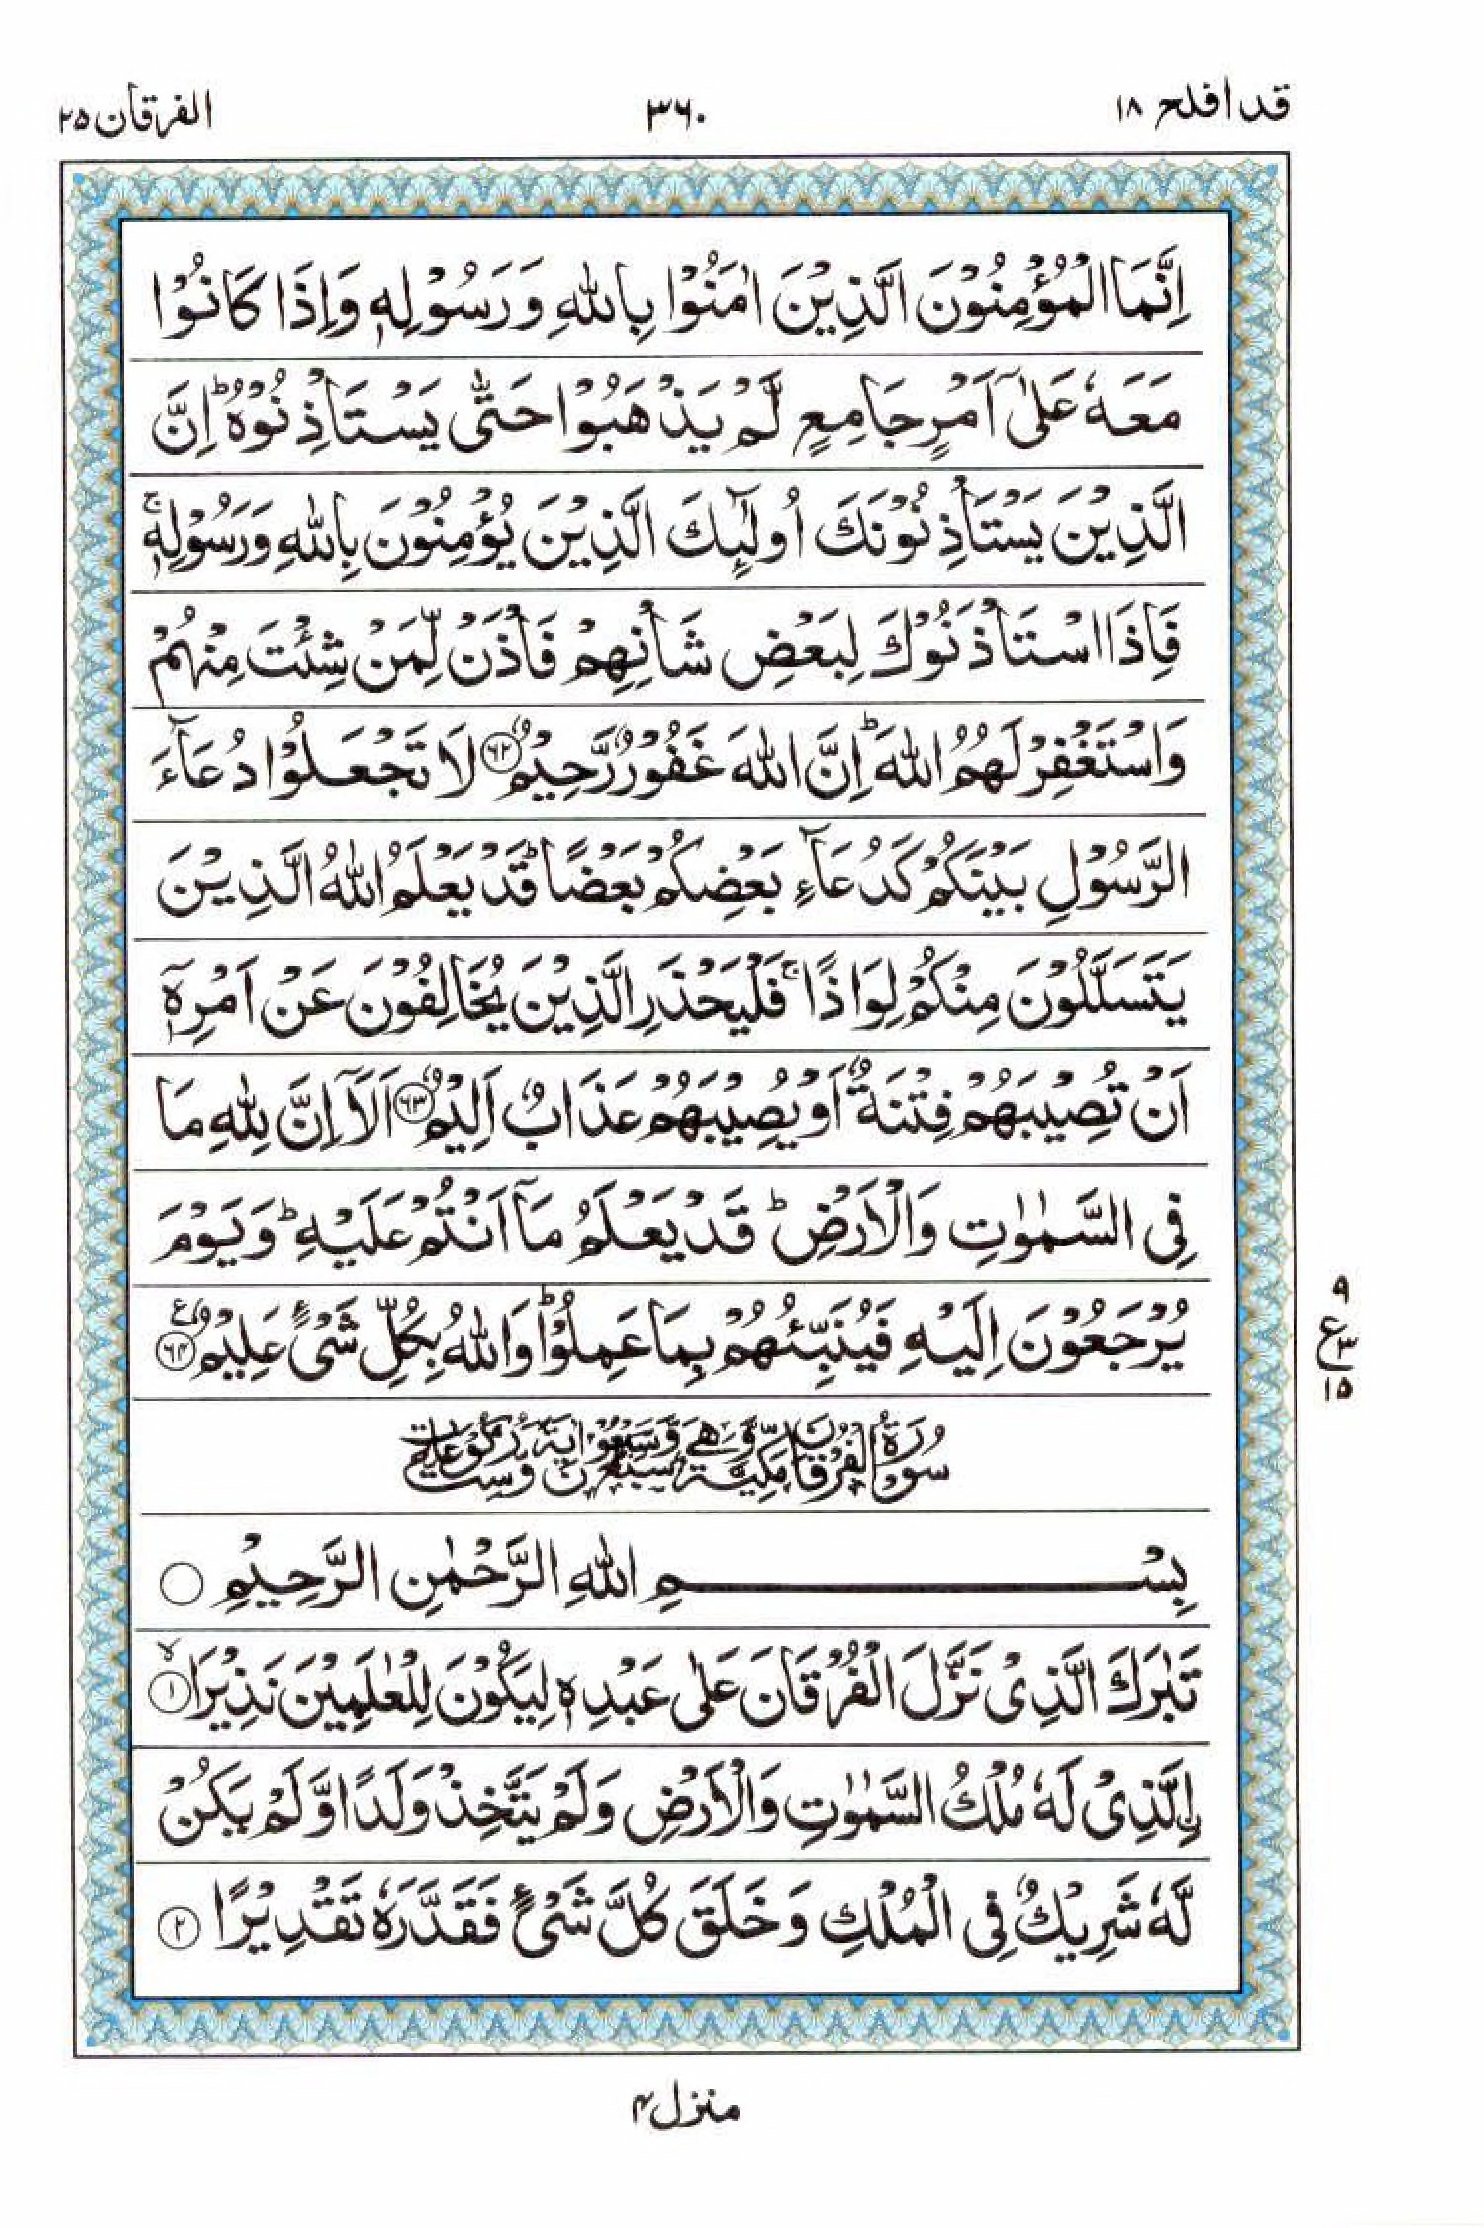 قد افلح ١٨
٣٦٠
الفرقان ٢٥
اِنَّمَا الْمُؤْمِنُوْنَ الَّذِيْنَ اٰمَنُوْا بِاللّٰهِ وَ رَسُوْلِهٖ وَ اِذَا كَانُوْا
مَعَهٗ عَلٰۤى اَمْرٍ جَامِعٍ لَّمْ يَذْهَبُوْا حَتّٰى يَسْتَاْذِنُوْهُ ؕ اِنَّ
الَّذِيْنَ يَسْتَاْذِنُوْنَكَ اُولٰٓئِكَ الَّذِيْنَ يُؤْمِنُوْنَ بِاللّٰهِ وَ رَسُوْلِهٖ ۚ
فَاِذَا اسْتَاْذَنُوْكَ لِبَعْضِ شَاْنِهِمْ فَاْذَنْ لِّمَنْ شِئْتَ مِنْهُمْ
وَاسْتَغْفِرْ لَهُمُ اللّٰهَ ؕ اِنَّ اللّٰهَ غَفُوْرٌ رَّحِيْمٌ ﴿٦٢﴾ لَا تَجْعَلُوْا دُعَآءَ
الرَّسُوْلِ بَيْنَكُمْ كَدُعَآءِ بَعْضِكُمْ بَعْضًا ؕ قَدْ يَعْلَمُ اللّٰهُ الَّذِيْنَ
يَتَسَلَّلُوْنَ مِنْكُمْ لِوَاذًا ۚ فَلْيَحْذَرِ الَّذِيْنَ يُخَالِفُوْنَ عَنْ اَمْرِهٖۤ
اَنْ تُصِيْبَهُمْ فِتْنَةٌ اَوْ يُصِيْبَهُمْ عَذَابٌ اَلِيْمٌ ﴿٦٣﴾ اَلَاۤ اِنَّ لِلّٰهِ مَا
فِى السَّمٰوٰتِ وَالْاَرْضِ ؕ قَدْ يَعْلَمُ مَاۤ اَنْتُمْ عَلَيْهِ ؕ وَ يَوْمَ
يُرْجَعُوْنَ اِلَيْهِ فَيُنَبِّئُهُمْ بِمَا عَمِلُوْا ؕ وَاللّٰهُ بِكُلِّ شَىْءٍ عَلِيْمٌ ﴿٦٤﴾ ع
٩
ع ٣
١٥
سُوْرَةُ الْفُرْقَانِ مَكِّيَّةٌ وَّهِىَ سَبْعٌ وَّسَبْعُوْنَ اٰيَةً وَّسِتُّ رُكُوْعَاتٍ
بِسْمِ اللّٰهِ الرَّحْمٰنِ الرَّحِيْمِ
تَبٰرَكَ الَّذِىْ نَزَّلَ الْفُرْقَانَ عَلٰى عَبْدِهٖ لِيَكُوْنَ لِلْعٰلَمِيْنَ نَذِيْرَا ۙ ﴿١﴾
اۨلَّذِىْ لَهٗ مُلْكُ السَّمٰوٰتِ وَالْاَرْضِ وَلَمْ يَتَّخِذْ وَلَدًا وَّ لَمْ يَكُنْ
لَّهٗ شَرِيْكٌ فِى الْمُلْكِ وَ خَلَقَ كُلَّ شَىْءٍ فَقَدَّرَهٗ تَقْدِيْرًا ﴿٢﴾
منزل ٤